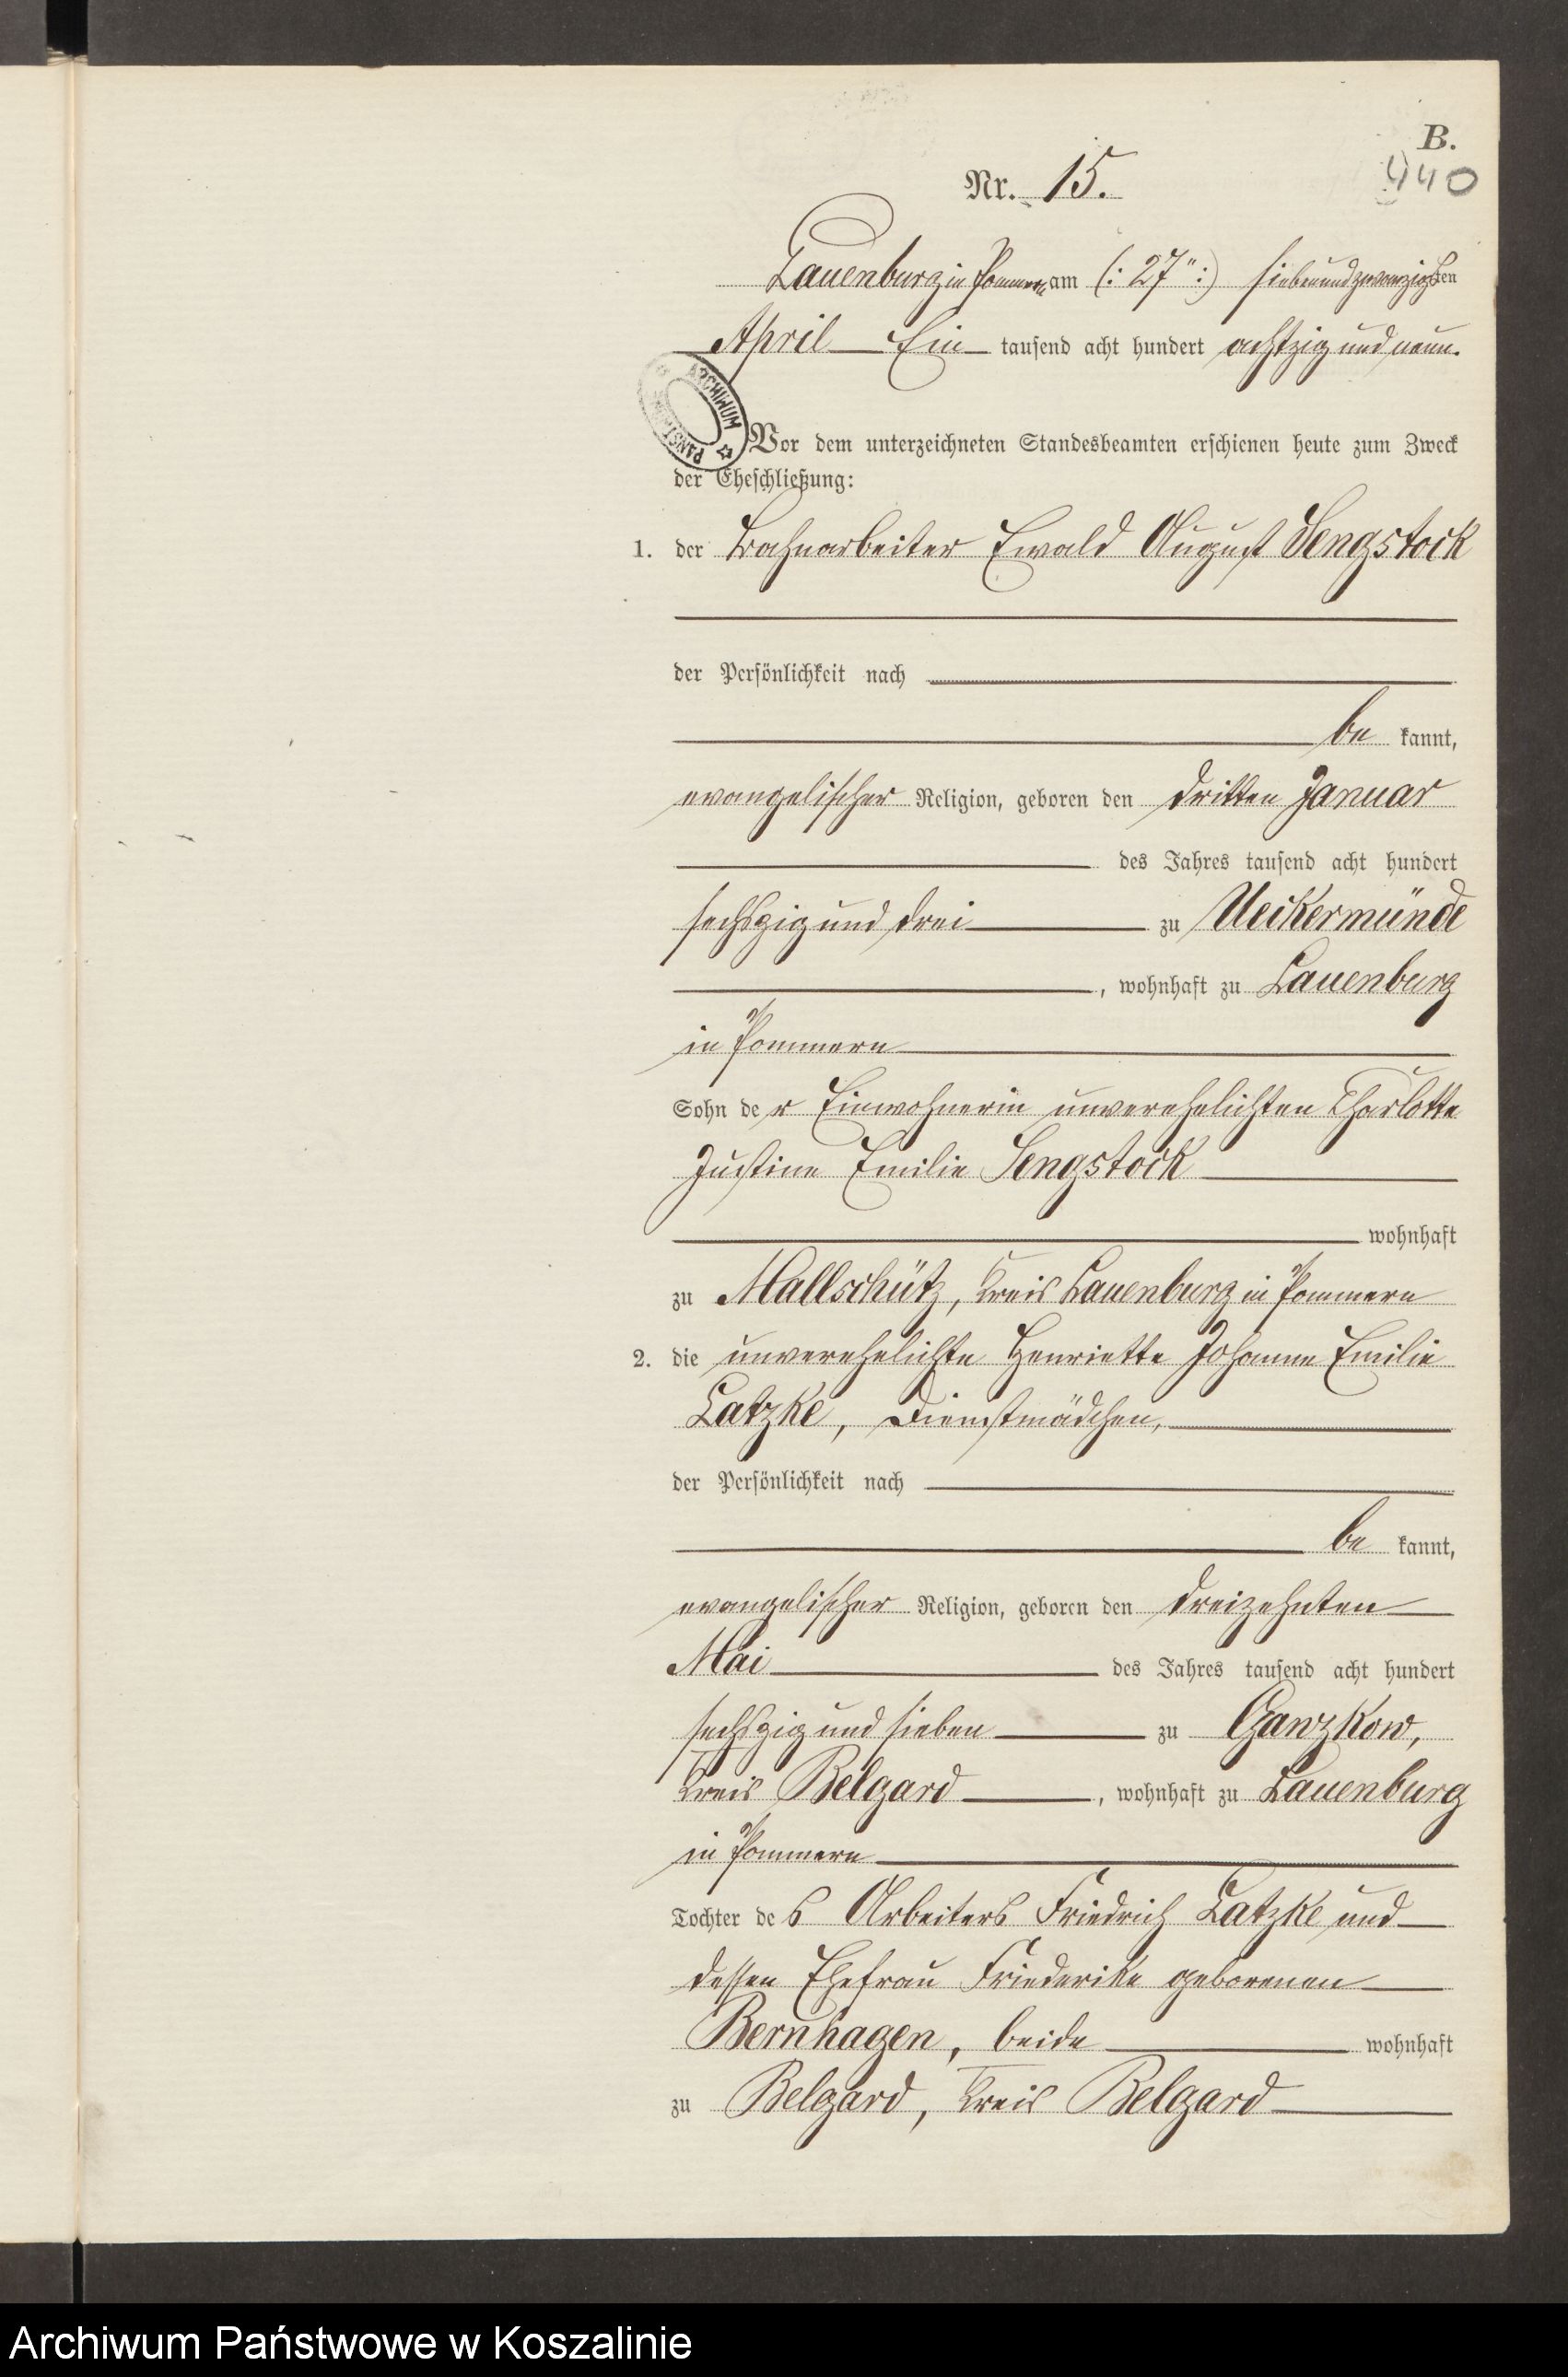 B.
440
Nr. 15.
Lauenburg in Pommern am (: 27ten :) siebenundzwanzigsten
April Ein tausend acht hundert achtzig und neun.
ARCHIWUM PAŃSTW
Vor dem unterzeichneten Standesbeamten erschienen heute zum Zweck
der Eheschließung:
1. der Bahnarbeiter Ewald August Sengstock
der Persönlichkeit nach
be kannt,
evangelischer Religion, geboren den dritten Januar
des Jahres tausend acht hundert
sechszig und drei zu Ueckermünde
, wohnhaft zu Lauenburg
in Pommern
Sohn der Einwohnerin unverehelichten Charlotte
Justine Emilie Sengstock
wohnhaft
zu Mallschütz, Kreis Lauenburg in Pommern
2. die unverehelichte Henriette Johanne Emilie
Latzke, Dienstmädchen,
der Persönlichkeit nach
be kannt,
evangelischer Religion, geboren den dreizehnten
Mai des Jahres tausend acht hundert
sechszig und sieben zu Ganzkow,
Kreis Belgard, wohnhaft zu Lauenburg
in Pommern
Tochter des Arbeiters Friedrich Latzke und
dessen Ehefrau Friederike geborenen
Bernhagen, beide wohnhaft
zu Belgard, Kreis Belgard
Archiwum Państwowe w Koszalinie